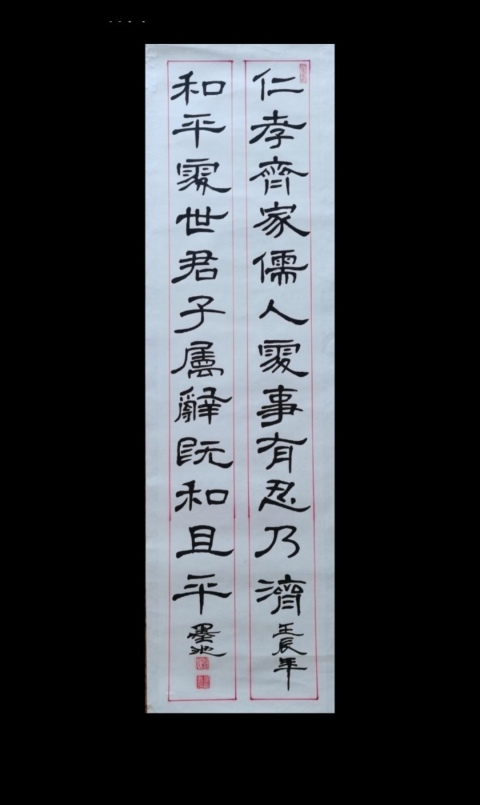 仁孝齊家儒人處事有忍乃濟
壬辰年
和平處世君子属辭既和且平
墨池